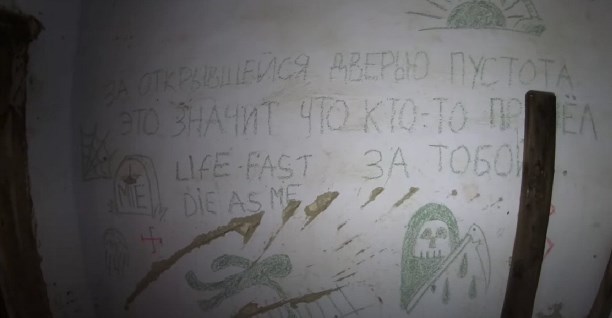 ЗА ОТКРЫВШЕЙСЯ ДВЕРЬЮ ПУСТОТА
ЭТО ЗНАЧИТ ЧТО КТО-ТО
ЗА ТОБОЙ
LIFE-FAST
DIE AS ME
ME